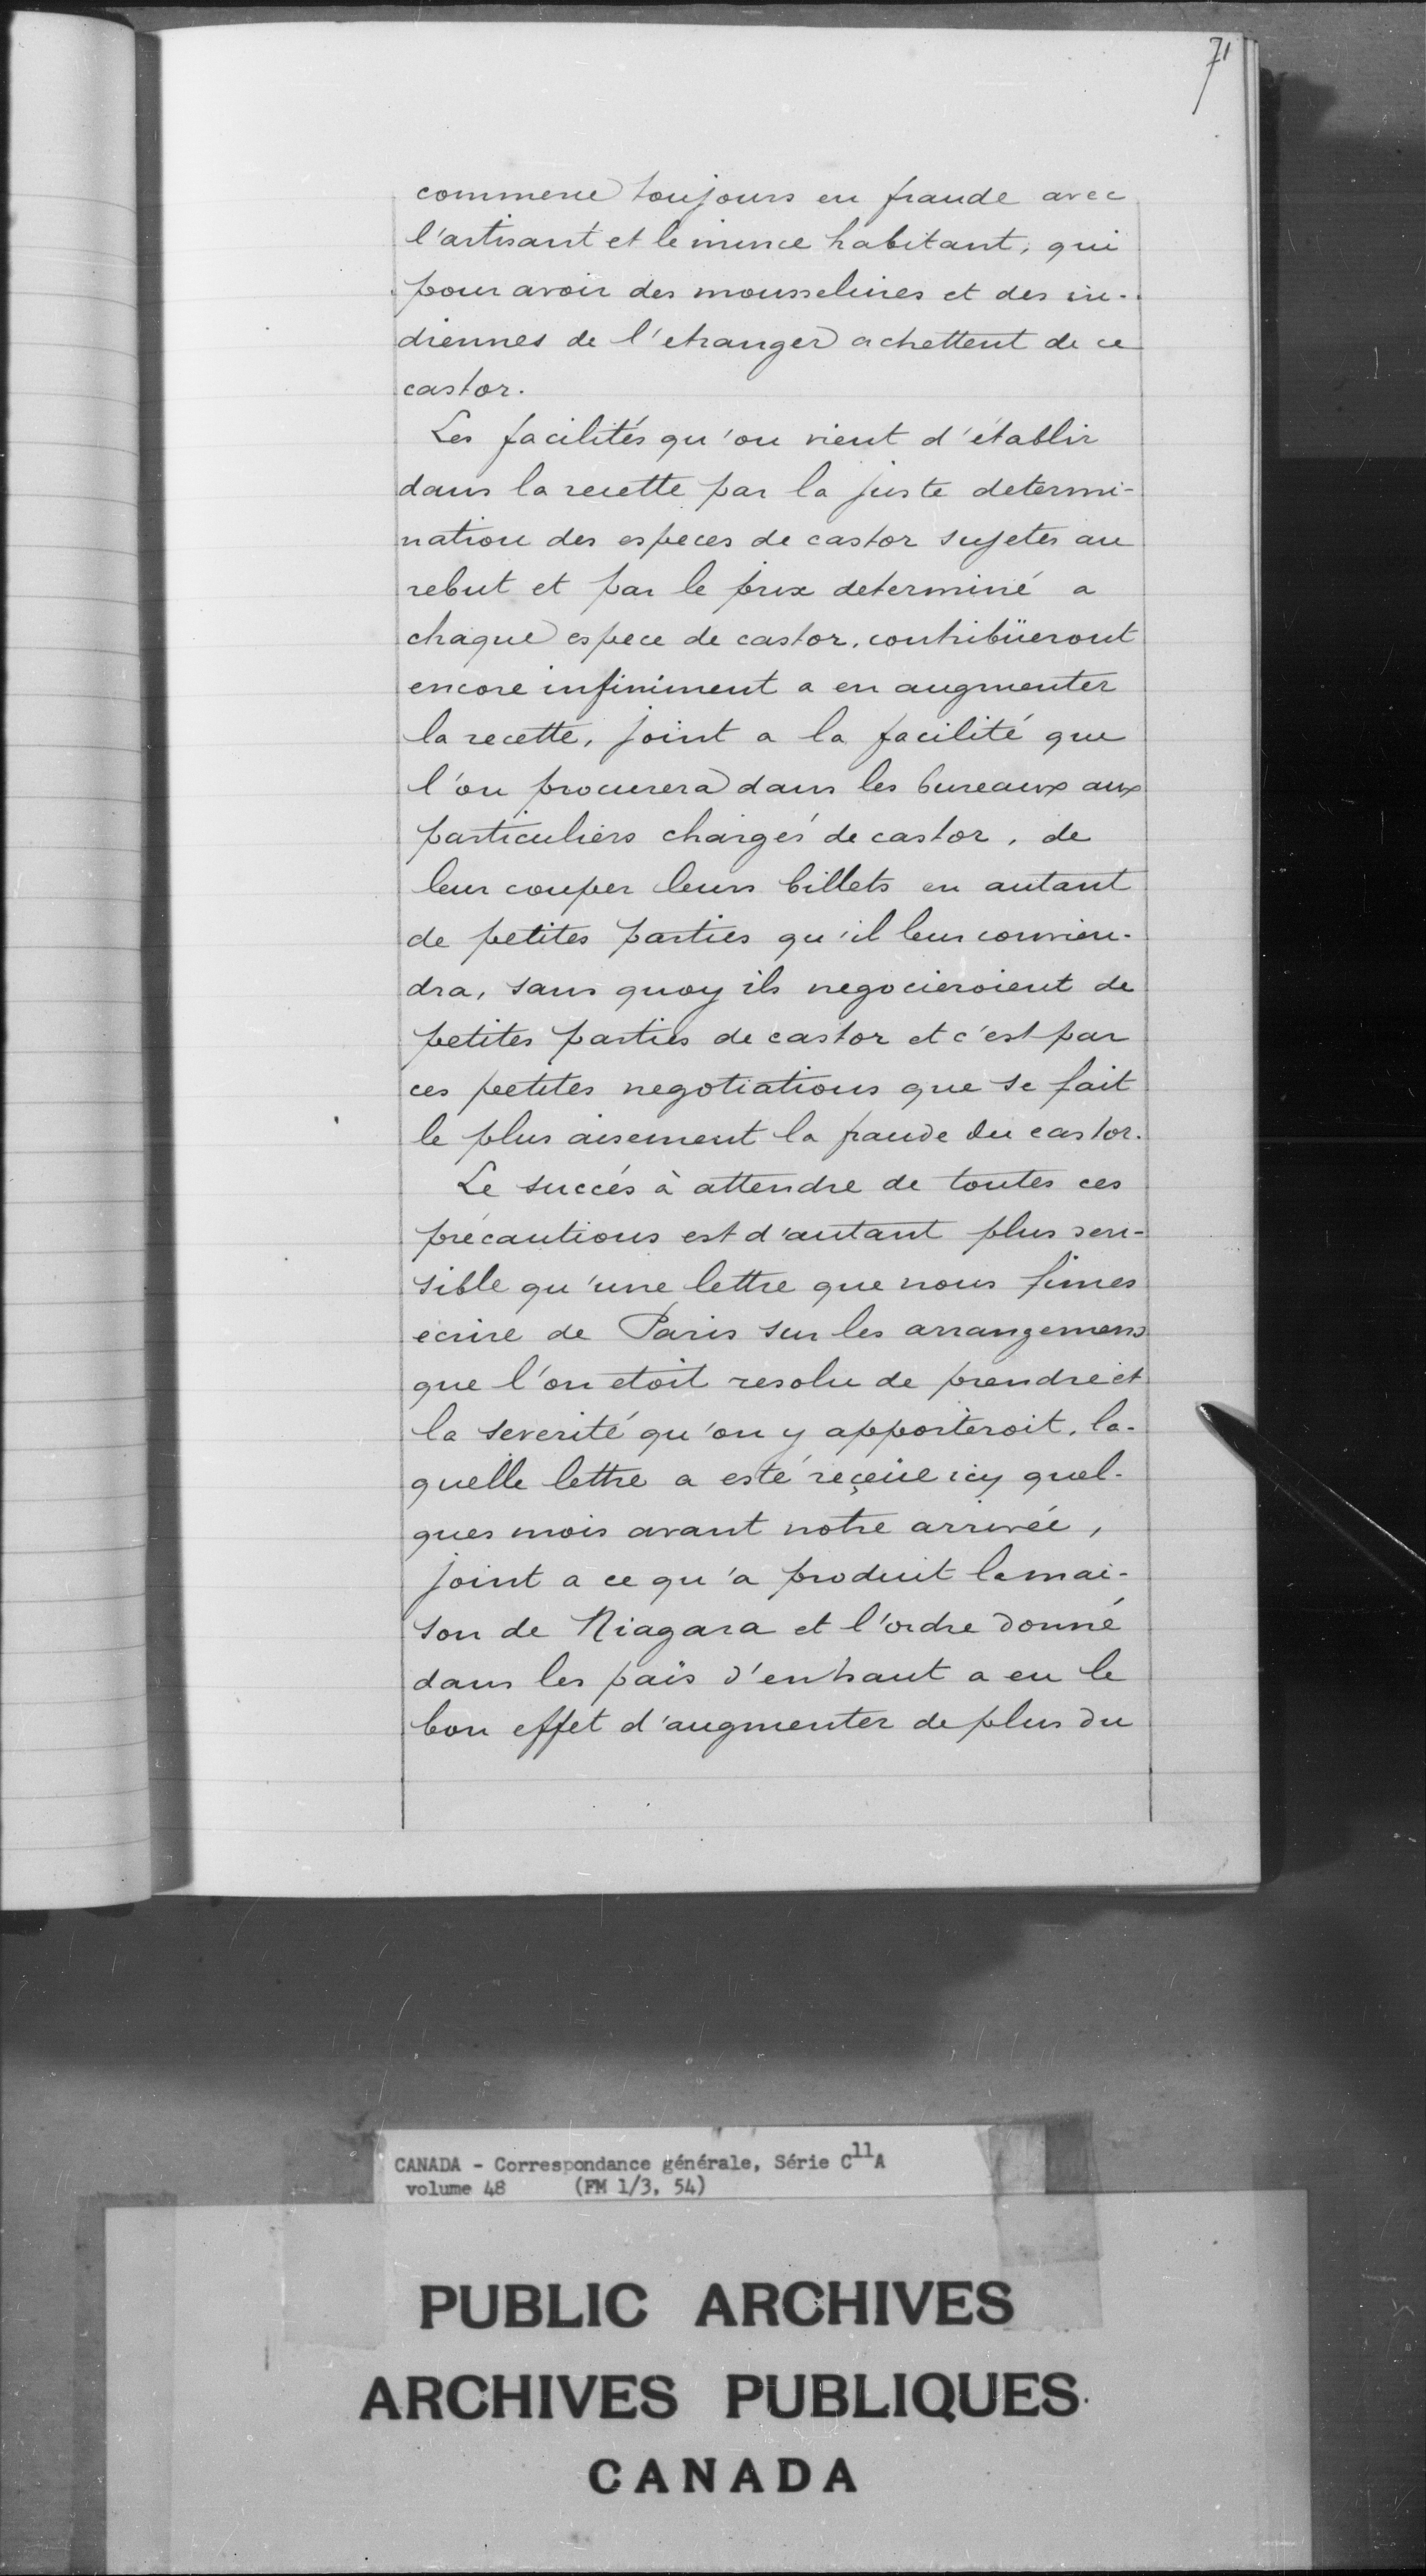 71
commerce toujours en fraude avec
l'artisant et le mince habitant, qui
pour avoir des mousselines et des in-
diennes de l'etranger achettent de ce
castor.
Les facilités qu'on vient d'établir
dans la recette par la juste determi-
nation des especes de castor sujetes au
rebut et par le prix determiné a
chaque espece de castor, contribüeront
encore infiniment a en augmenter
la recette, joint a la facilité que
l'on procurera dans les bureaux aux
particuliers chargés de castor, de
leur couper leurs billets en autant
de petites parties qu'il leur convien-
dra, sans quoy ils negocieroient de
petites parties de castor et c'est par
ces petites negotiations que se fait
le plus aisement la fraude du castor.
Le succés à attendre de toutes ces
précautions est d'autant plus sen-
sible qu'une lettre que nous fimes
ecrire de Paris sur les arrangemens
que l'on etoit resolu de prendre et
la severité qu'on y apporteroit, la-
quelle lettre a esté reçeüe icy quel-
ques mois avant notre arrivée,
joint a ce qu'a produit la mai-
son de Niagara et l'ordre donné
dans les païs d'enhaut a eu le
bon effet d'augmenter de plus du
CANADA - Correspondance générale, Série C11A
volume 48 (FM 1/3, 54)
PUBLIC ARCHIVES
ARCHIVES PUBLIQUES
CANADA